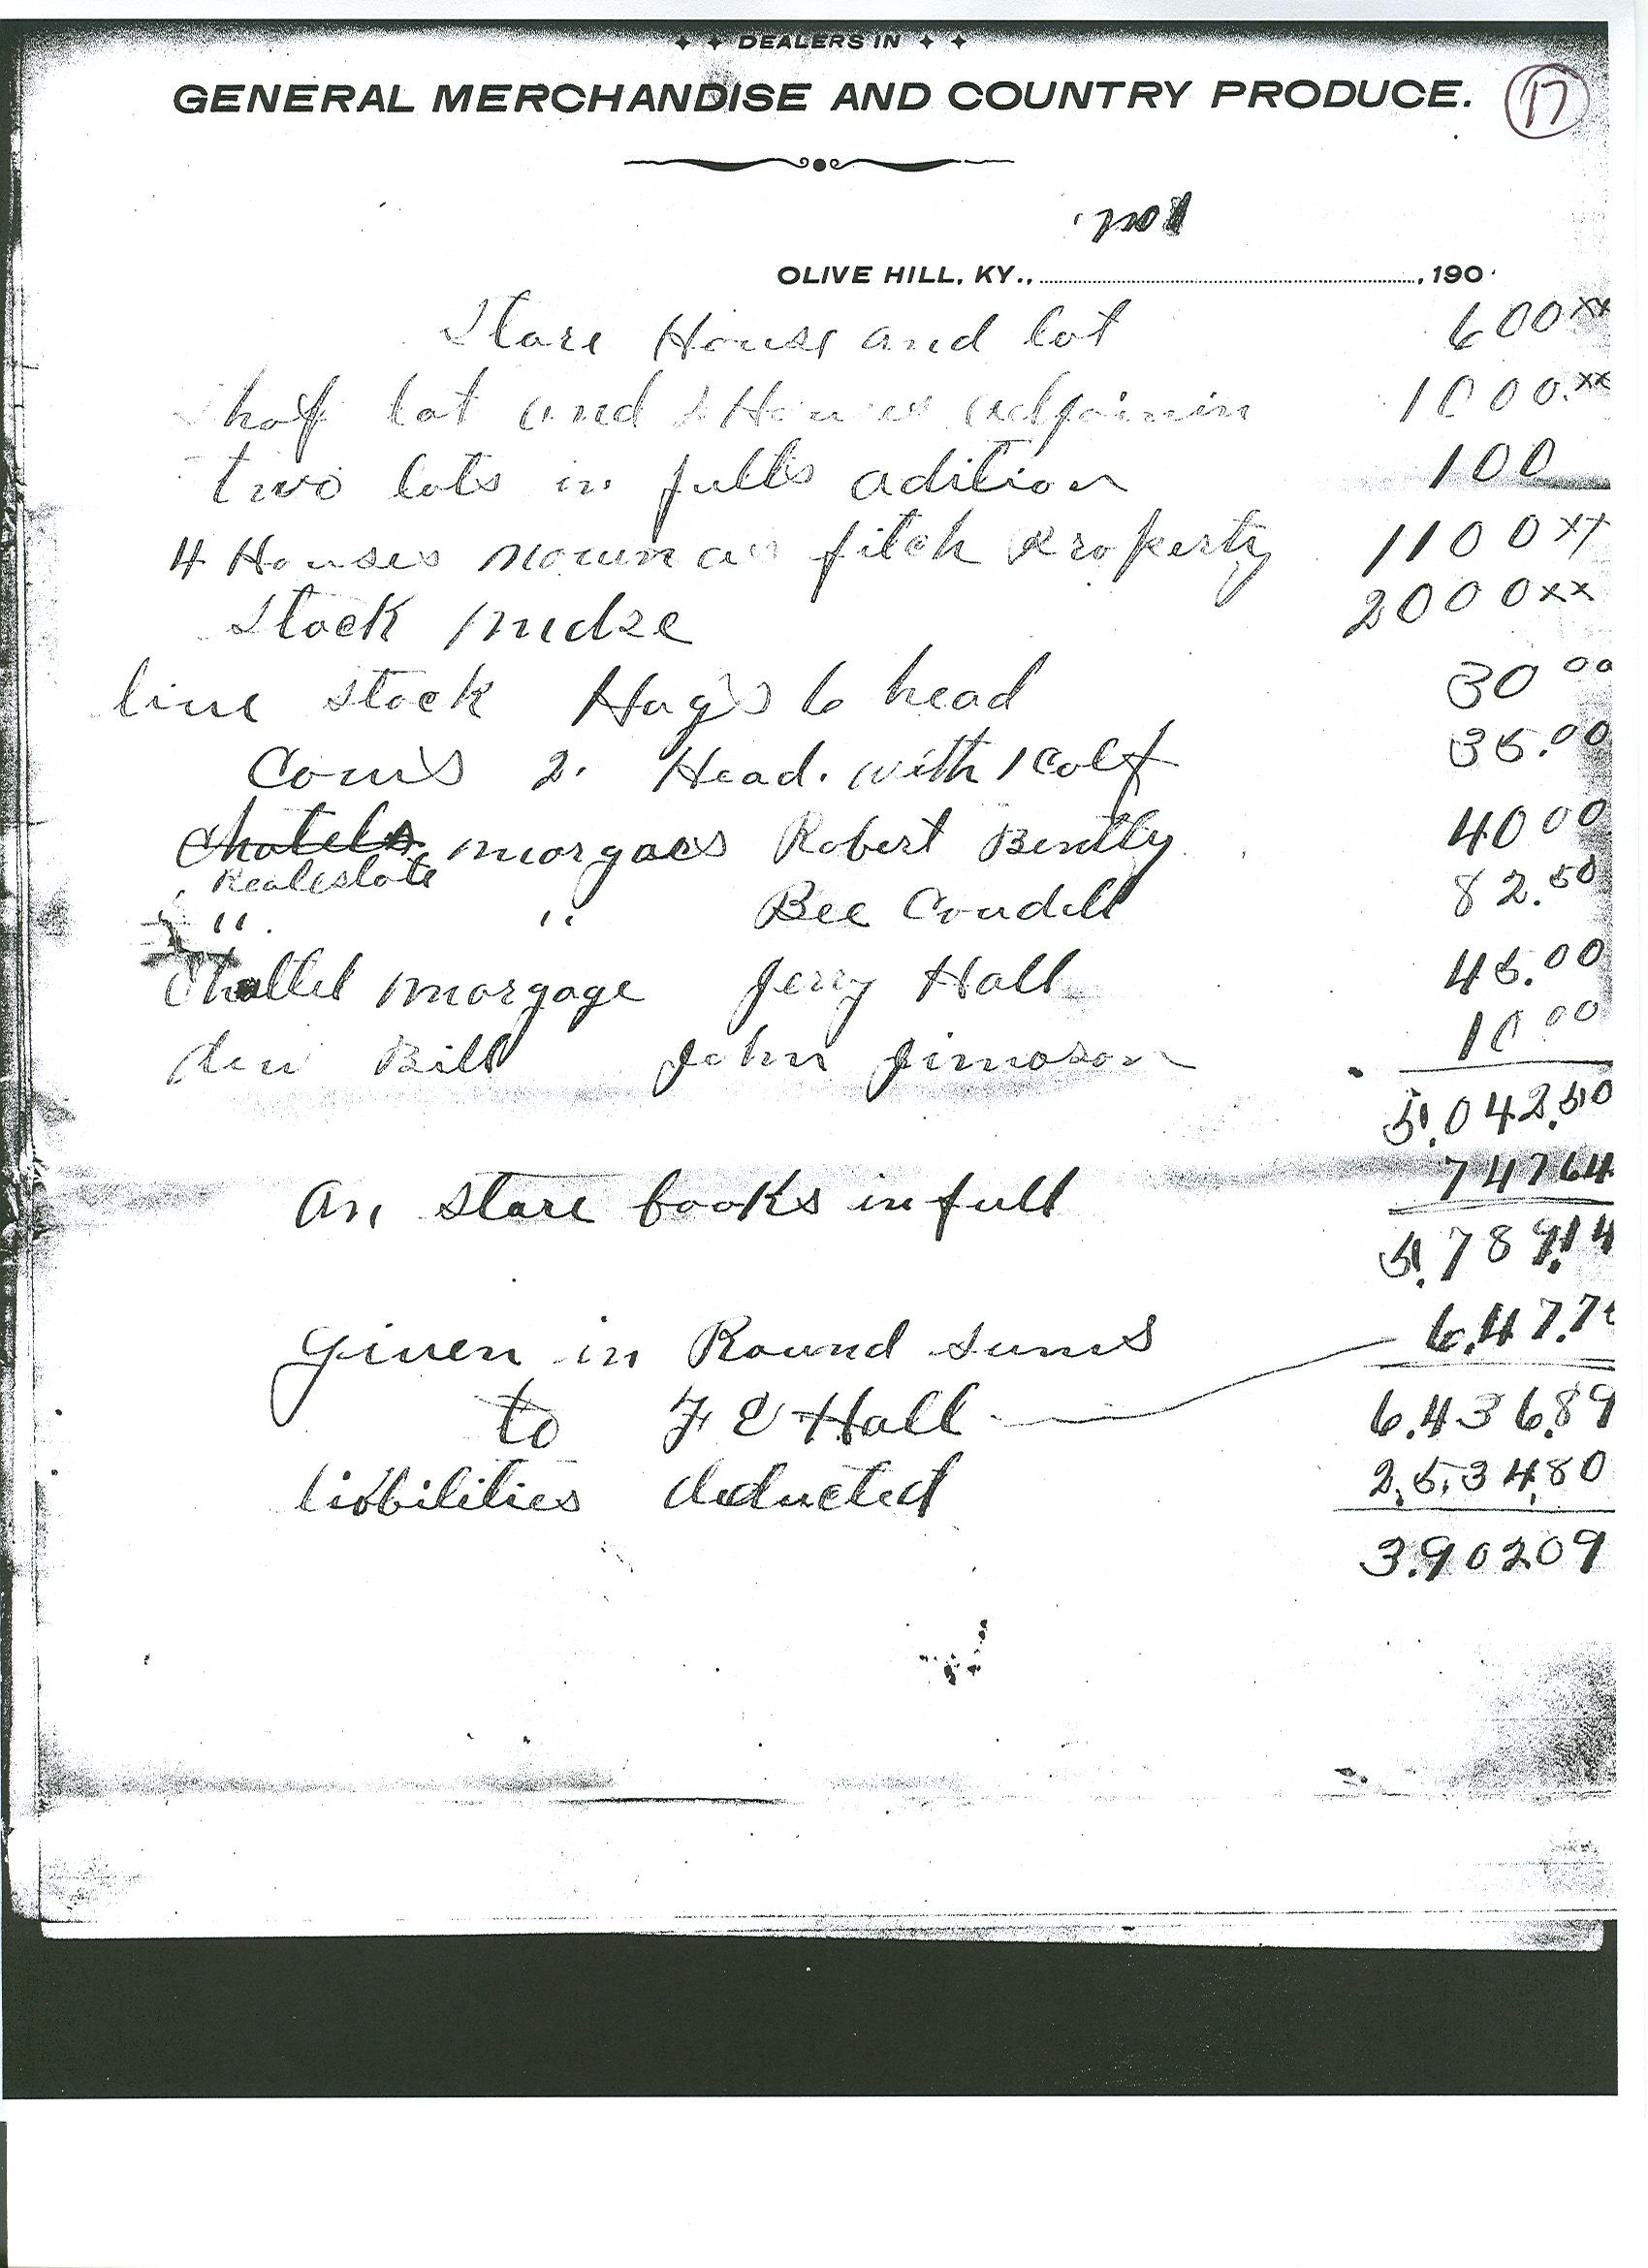 DEALERS IN
GENERAL MERCHANDISE AND COUNTRY PRODUCE.
17
OLIVE HILL, KY., , 190
Store House and lot 600 xx
haf lot and 2 Houses adjoinin 1000.xx
two lots in fults adition 100
4 Houses nown as fitch property 1100 xx
Stock mdze 2000 xx
live stock Hogs 6 head 30 00
Cows 2. Head. with 1 Colf 35.00
Chatels morgaes Robert Bently 40 00
Realestate
" " Bee Coudill 82.50
Chattel morgage Jerry Hall 45.00
due Bill John Jimoson 10 00
5,042.50
An store books in full 747 64
5,789.14
Given in Round sums 6,47.7
to F E Hall
6,436.89
liobilities deducted 2,534.80
3,90209